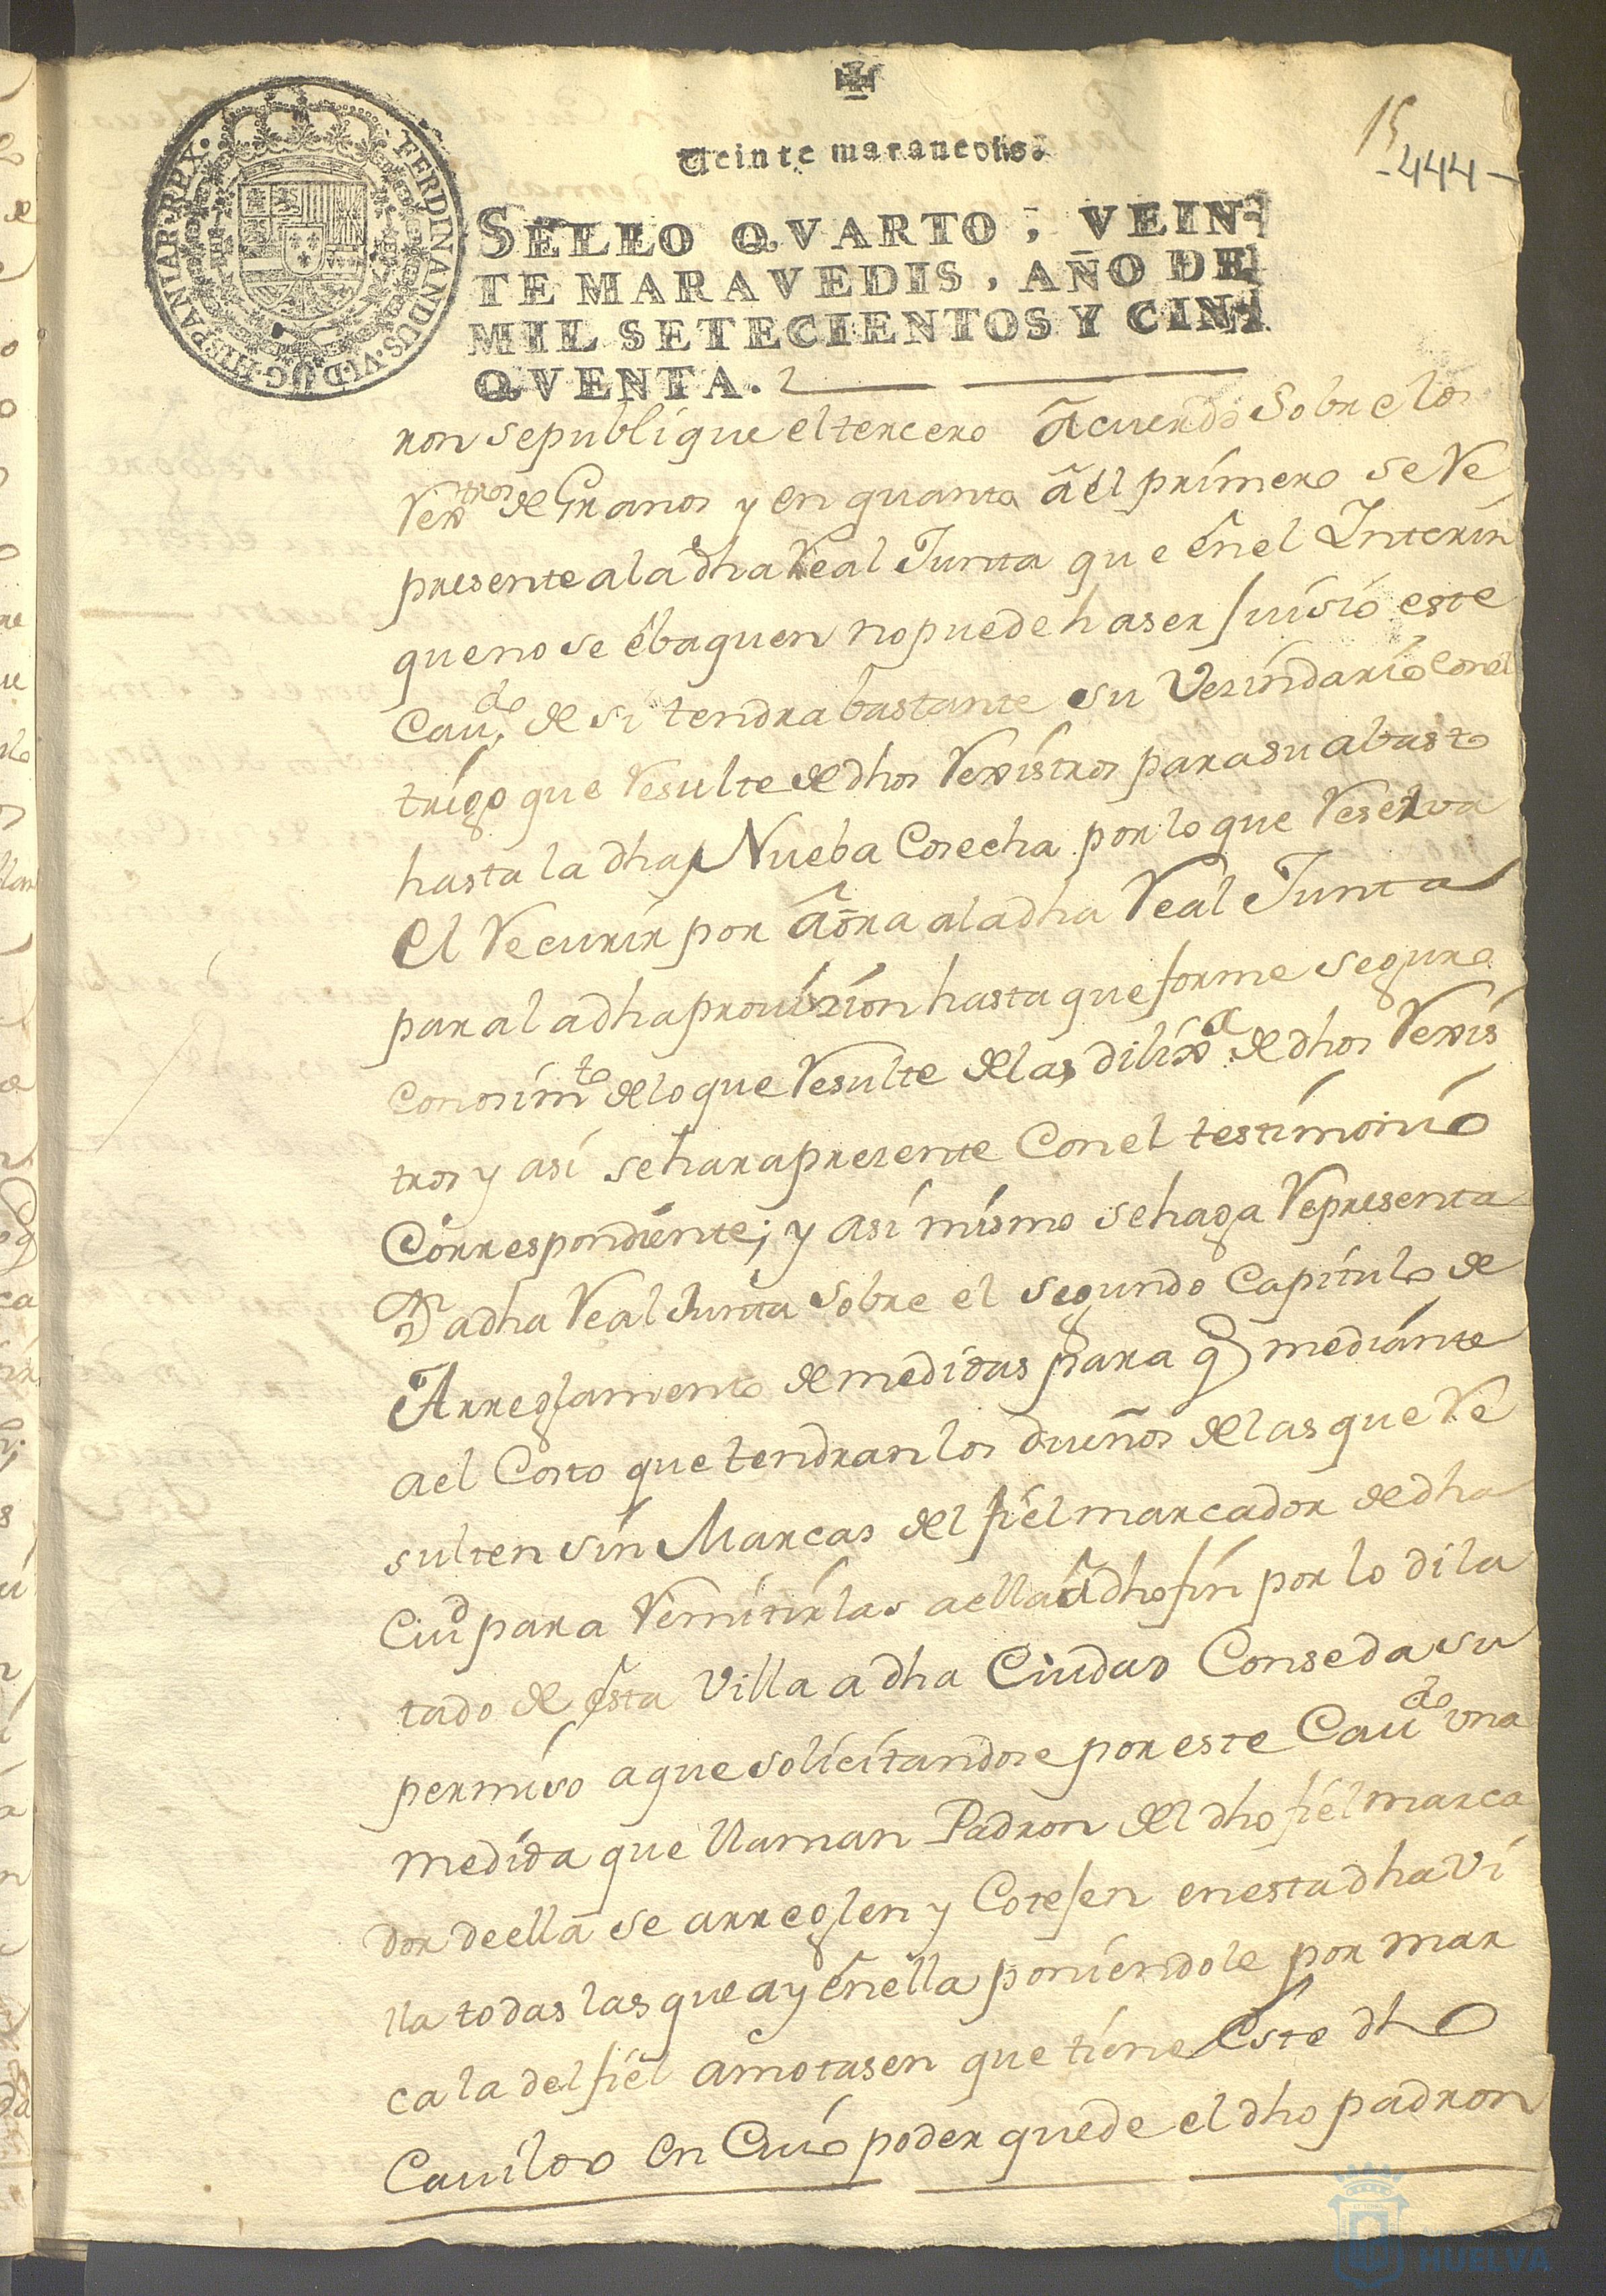 15
-444-
Veinte maravedis.
SELLO QVARTO, VEIN-
TE MARAVEDIS, AÑO DE
MIL SETECIENTOS Y CIN-
QVENTA.
FERDINANDUS.VI.D.G.HISPANIAR.REX.
ron se publique el tercero acuerdo sobre los
Rextros de Granos y en quanto a el primero se Re
presente a la dha Real Junta que en el Interin
que no se ebaquen no puede haser juisio este
Caudo de si tendra bastante su Vesindario con el
trigo que Resulte de dhos Rexistros para su abasto
hasta la dha Nueba Cosecha por lo que Reserva
el Recurir por aora a la dha Real Junta
para la dha provixion hasta que forme seguro
conosimto de lo que Resulte de las dilixa de dhos Rexis
tros y asi se hara presente Con el testimonio
Correspondiente; y asi mismo se haga Representa
on a dha Real Junta sobre el segundo Capitulo de
Arreglamento de medidas para q mediante
a el Costo que tendran los dueños de las que Re
sulten sin Marcas del fiel marcador de dha
Ciud para Remitirlas a ella a dho fin por lo dila
tado de esta Villa a dha Ciudad Conseda su
permiso a que solicitandose por este Caudo una
medida que llaman Padron del dho fiel marca
dor de ella se arreglen y Cotejen en esta dha Vi
lla todas las que ay en ella poniendole por mar
ca la del fiel amotasen que tiene Este dho
Cavildo en Cuio poder quede el dho padron
HUELVA